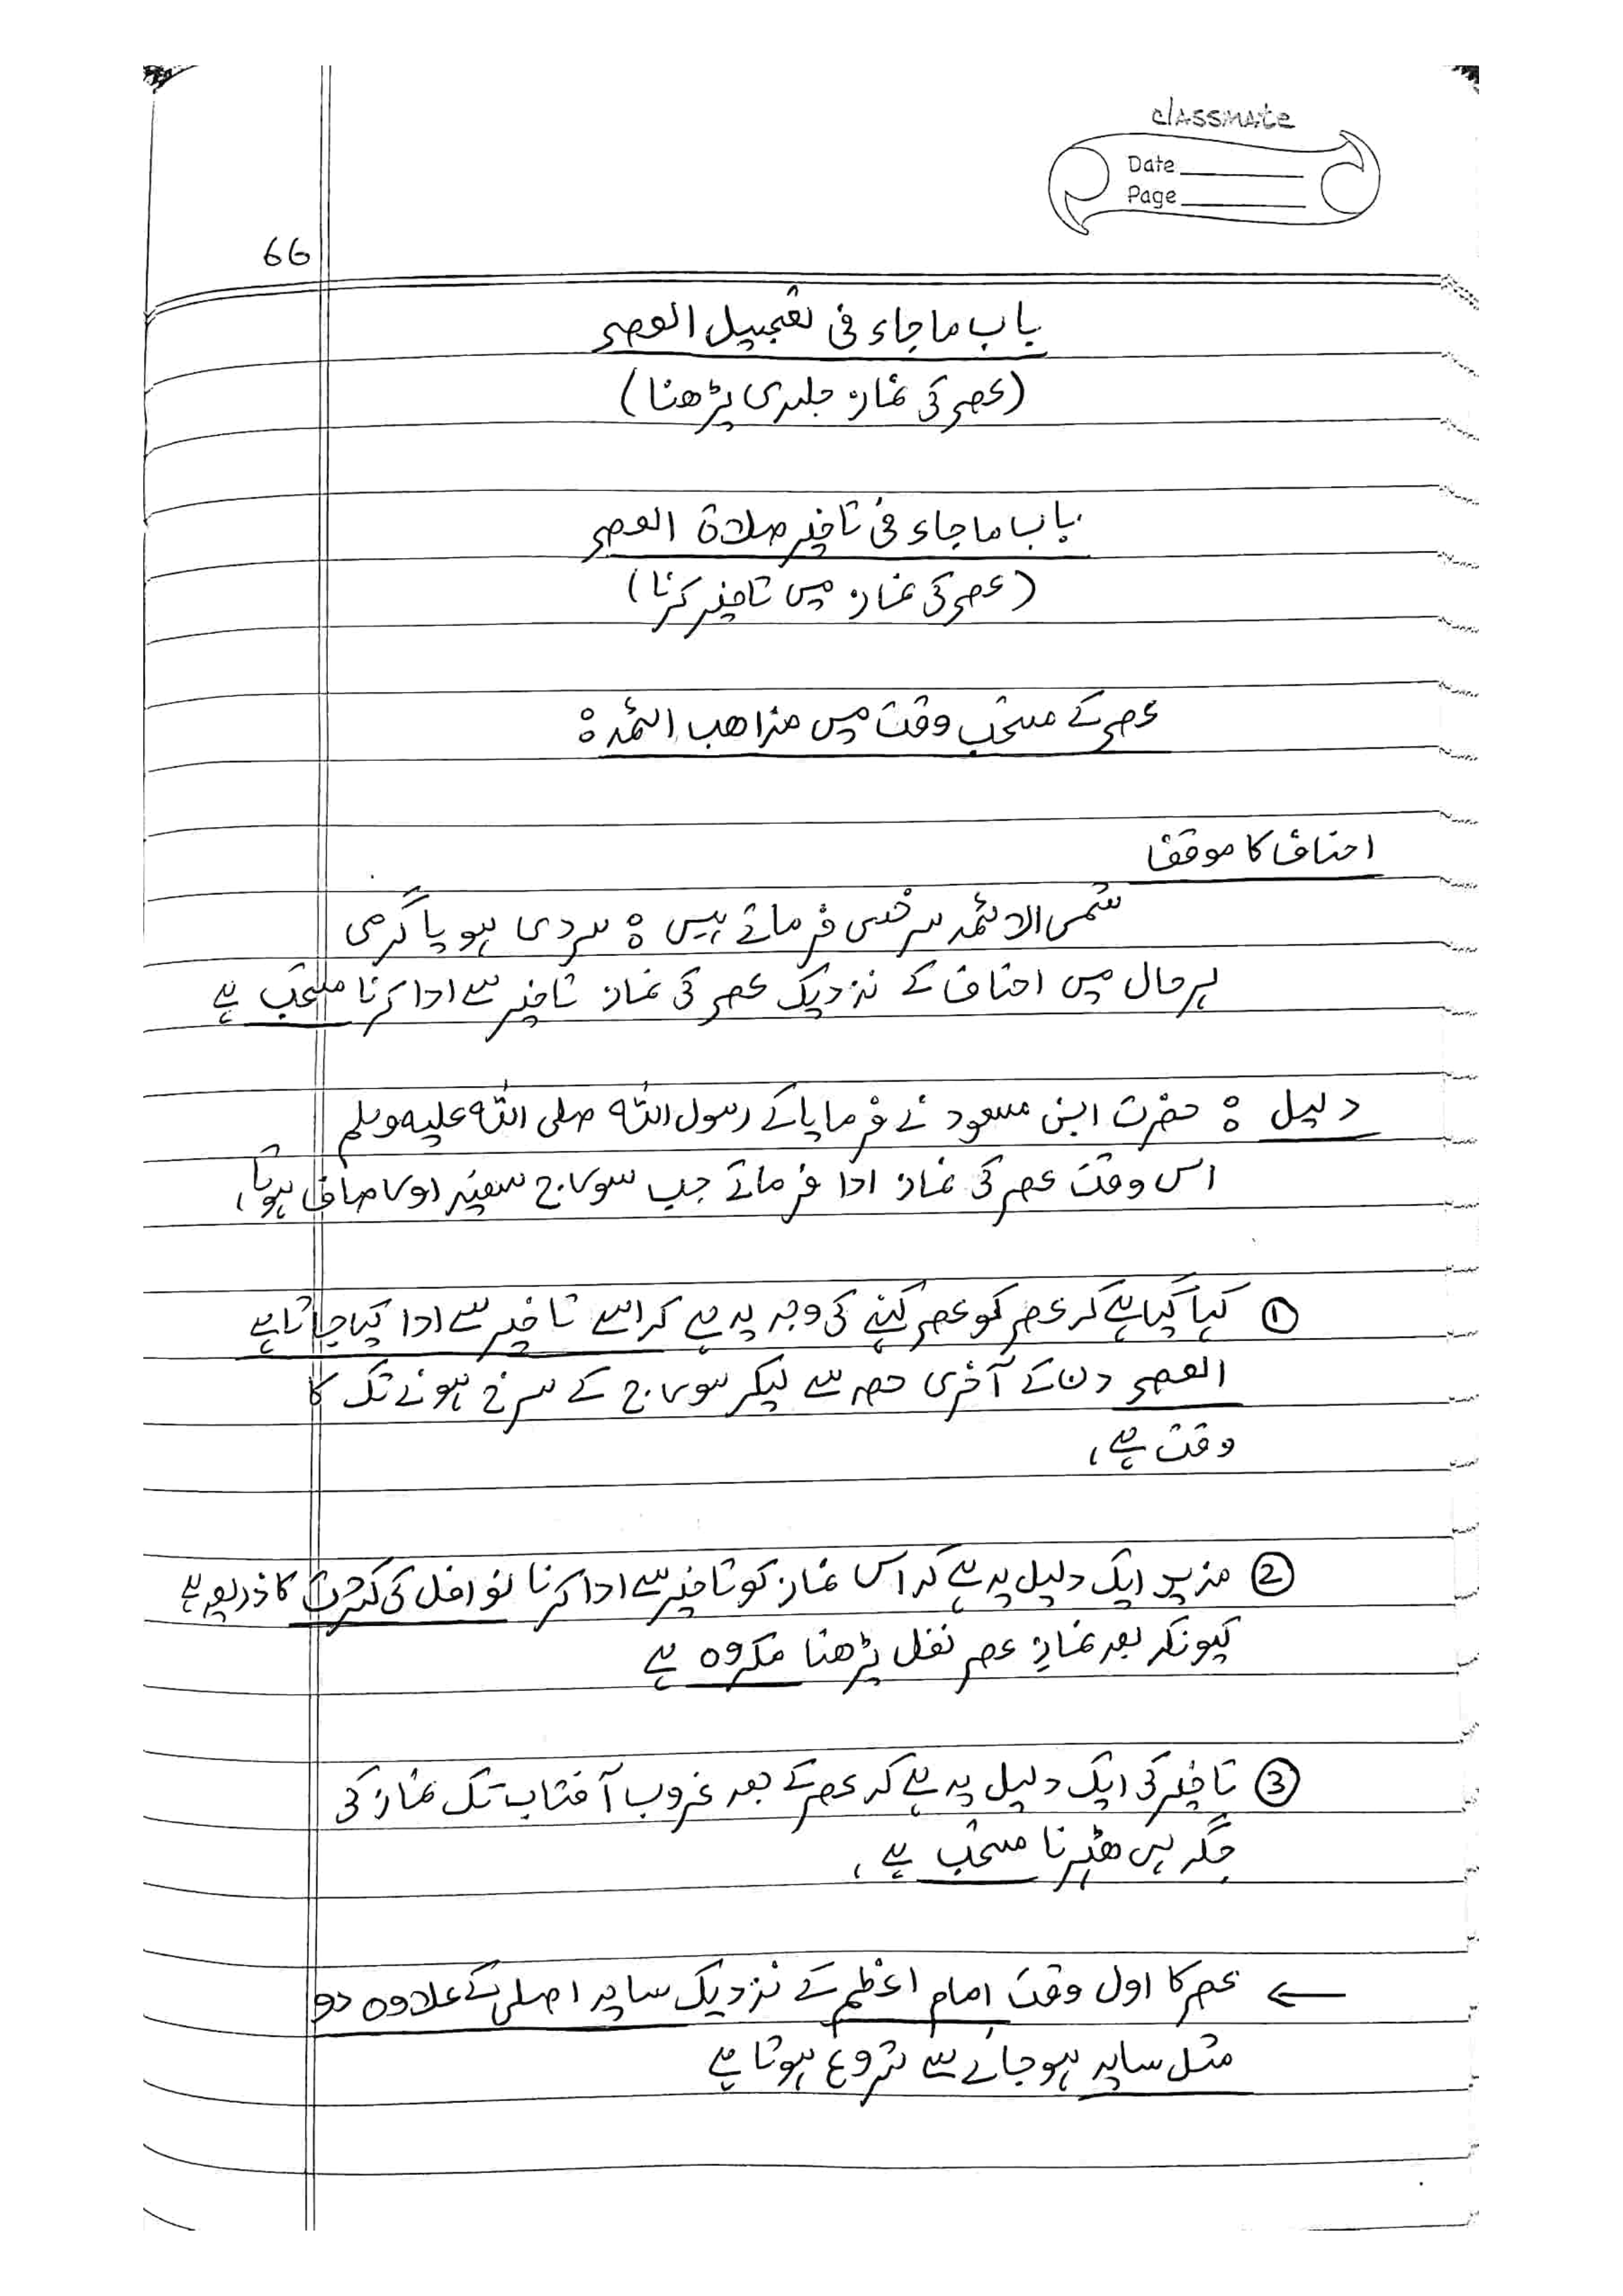 classmate
Date
Page
66
باب ما جاء فی تعجیل العصر
(عصر کی نماز جلدی پڑھنا)
باب ما جاء فی تاخیر صلاۃ العصر
(عصر کی نماز میں تاخیر کرنا)
عصر کے مستحب وقت میں مذاھب ائمہ :
احناف کا موقف
شمس الائمہ سرخسی فرماتے ہیں : سردی ہو یا گرمی
ہر حال میں احناف کے نزدیک عصر کی نماز تاخیر سے ادا کرنا مستحب ہے
دلیل : حضرت ابن مسعود نے فرمایا کے رسول اللہ صلی اللہ علیہ وسلم
اس وقت عصر کی نماز ادا فرماتے جب سورج سفید اور صاف ہوتا،
① کہا گیا ہے کہ عصر کو عصر کہنے کی وجہ یہ ہے کہ اسے تاخیر سے ادا کیا جاتا ہے
العصر دن کے آخری حصہ سے لیکر سورج کے سرخ ہونے تک کا
وقت ہے،
② مزید ایک دلیل یہ ہے کہ اس نماز کو تاخیر سے ادا کرنا نوافل کی کثرت کا ذریعہ ہے
کیونکہ بعد نمازِ عصر نفل پڑھنا مکروہ ہے
③ تاخیر کی ایک دلیل یہ ہے کہ عصر کے بعد غروب آفتاب تک نماز کی
جگہ ہی ٹھہرنا مستحب ہے،
← عصر کا اول وقت امام اعظم کے نزدیک سایہ اصلی کے علاوہ دو
مثل سایہ ہو جانے سے شروع ہوتا ہے